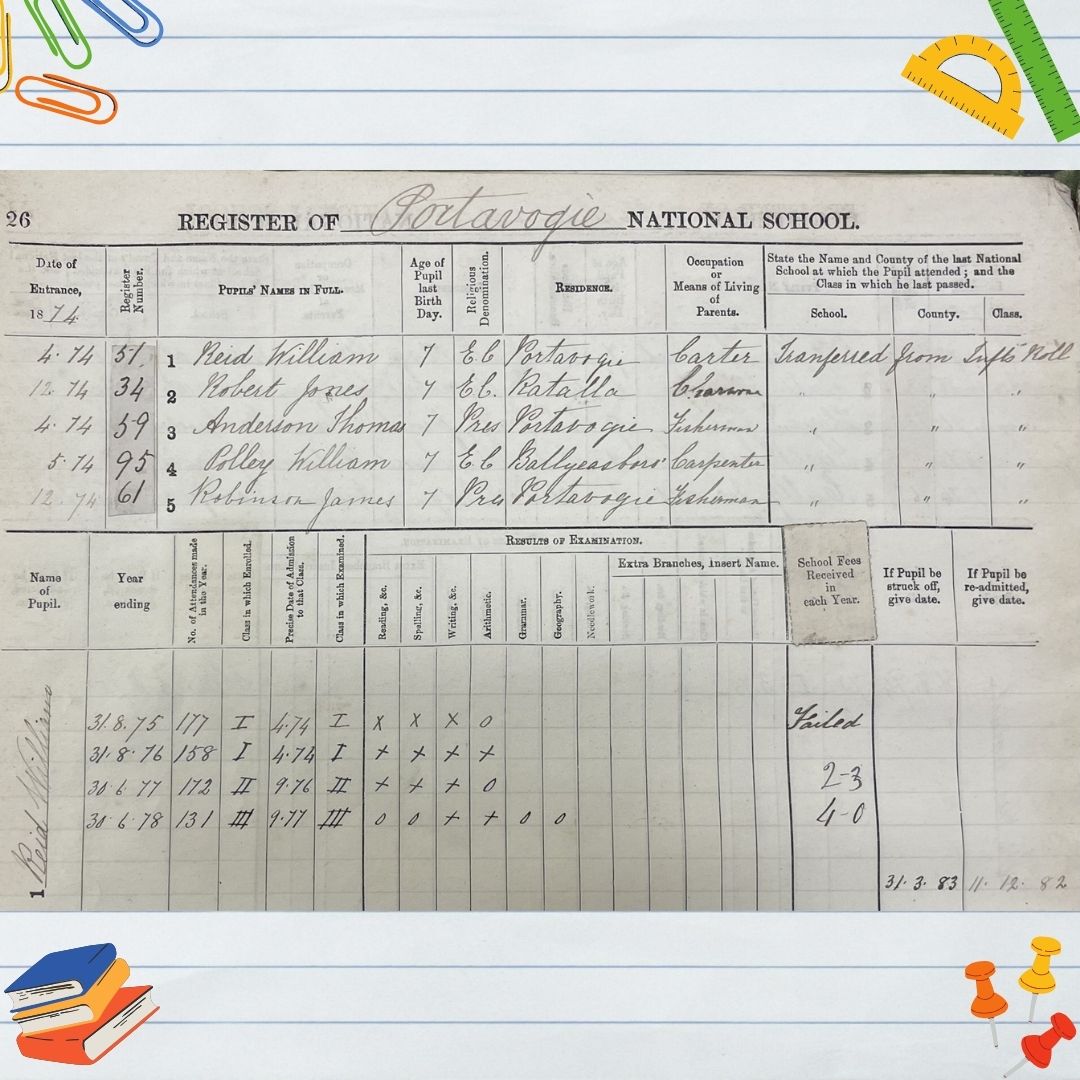 26 REGISTER OF Portavogie NATIONAL SCHOOL.
Date of Entrance, 1874.
Register Number.
PUPILS' NAMES IN FULL.
Age of Pupil last Birth Day.
Religious Denomination.
RESIDENCE.
Occupation or Means of Living of Parents.
State the Name and County of the last National School at which the Pupil attended; and the Class in which he last passed.
School. County. Class.
4. 74 51. 1 Reid William 7 E C Portavogie Carter Tranferred from Infts Roll
12. 74 34 2 Robert Jones 7 E C. Ratalla " " "
4. 74 59 3 Anderson Thomas 7 Pres Portavogie Fisherman " " "
5. 74 95 4 Polley William 7 E C Ballyeasboro' Carpenter " " "
12. 74 61 5 Robinson James 7 Pres Portavogie Fisherman " " "
Name of Pupil.
Year ending
No. of Attendances made in the Year.
Class in which Enrolled.
Precise Date of Admission to that Class.
Class in which Examined.
RESULTS OF EXAMINATION.
Reading, &c.
Spelling, &c.
Writing, &c.
Arithmetic.
Grammar.
Geography.
Needlework.
Extra Branches, Insert Name.
School Fees Received in each Year.
If Pupil be struck off, give date.
If Pupil be re-admitted, give date.
1 Reid William
31. 8. 75 177 I 4.74 I x x x 0 Failed
31. 8. 76 158 I 4.74 I + + + +
30. 6. 77 172 II 9.76 II + + + 0 2-3
30. 6. 78 131 III 9.77 III 0 0 + + 0 0 4-0
31. 3. 83 11. 12. 82